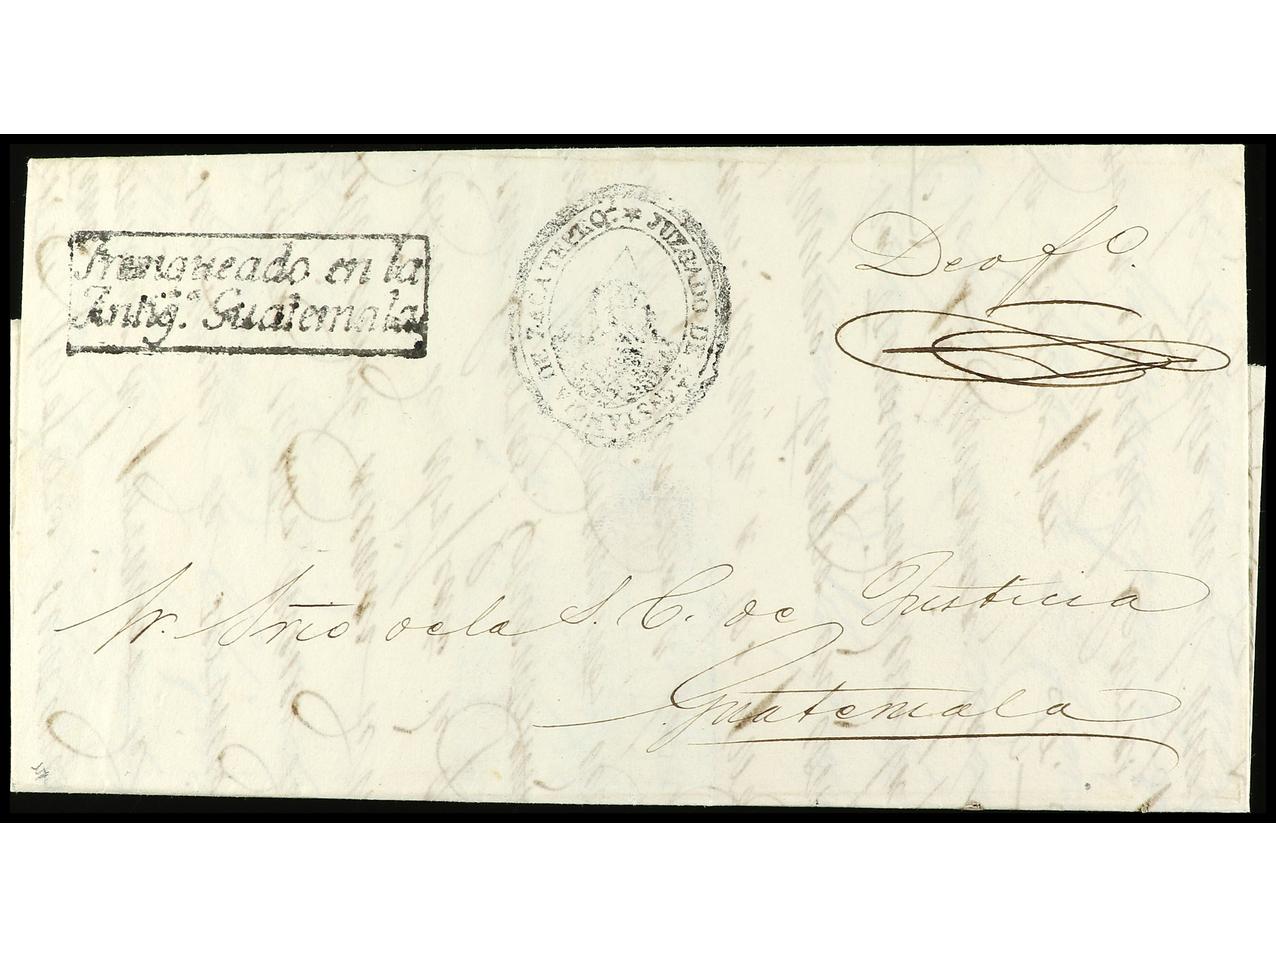 Franqueado en la
Antigª. Guatemala
JUZGADO DE 1ª INSTANCIA DE ZACATEPEQ.
De ofº.
Sr. Srio de la S. C. de Justicia
Guatemala